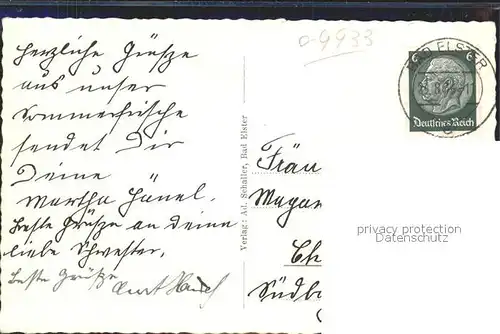 Herzliche Grüße
aus unser
Sommerfrische
sendet Dir
Deine
Martha Hänel.
Beste Grüße an deine
liebe Schwester.
Beste Grüße
Verlag: Ad. Schaller, Bad Elster
9933
BAD ELSTER
Deutsches Reich
Fräu
Ch
Südb
privacy protection
Datenschutz